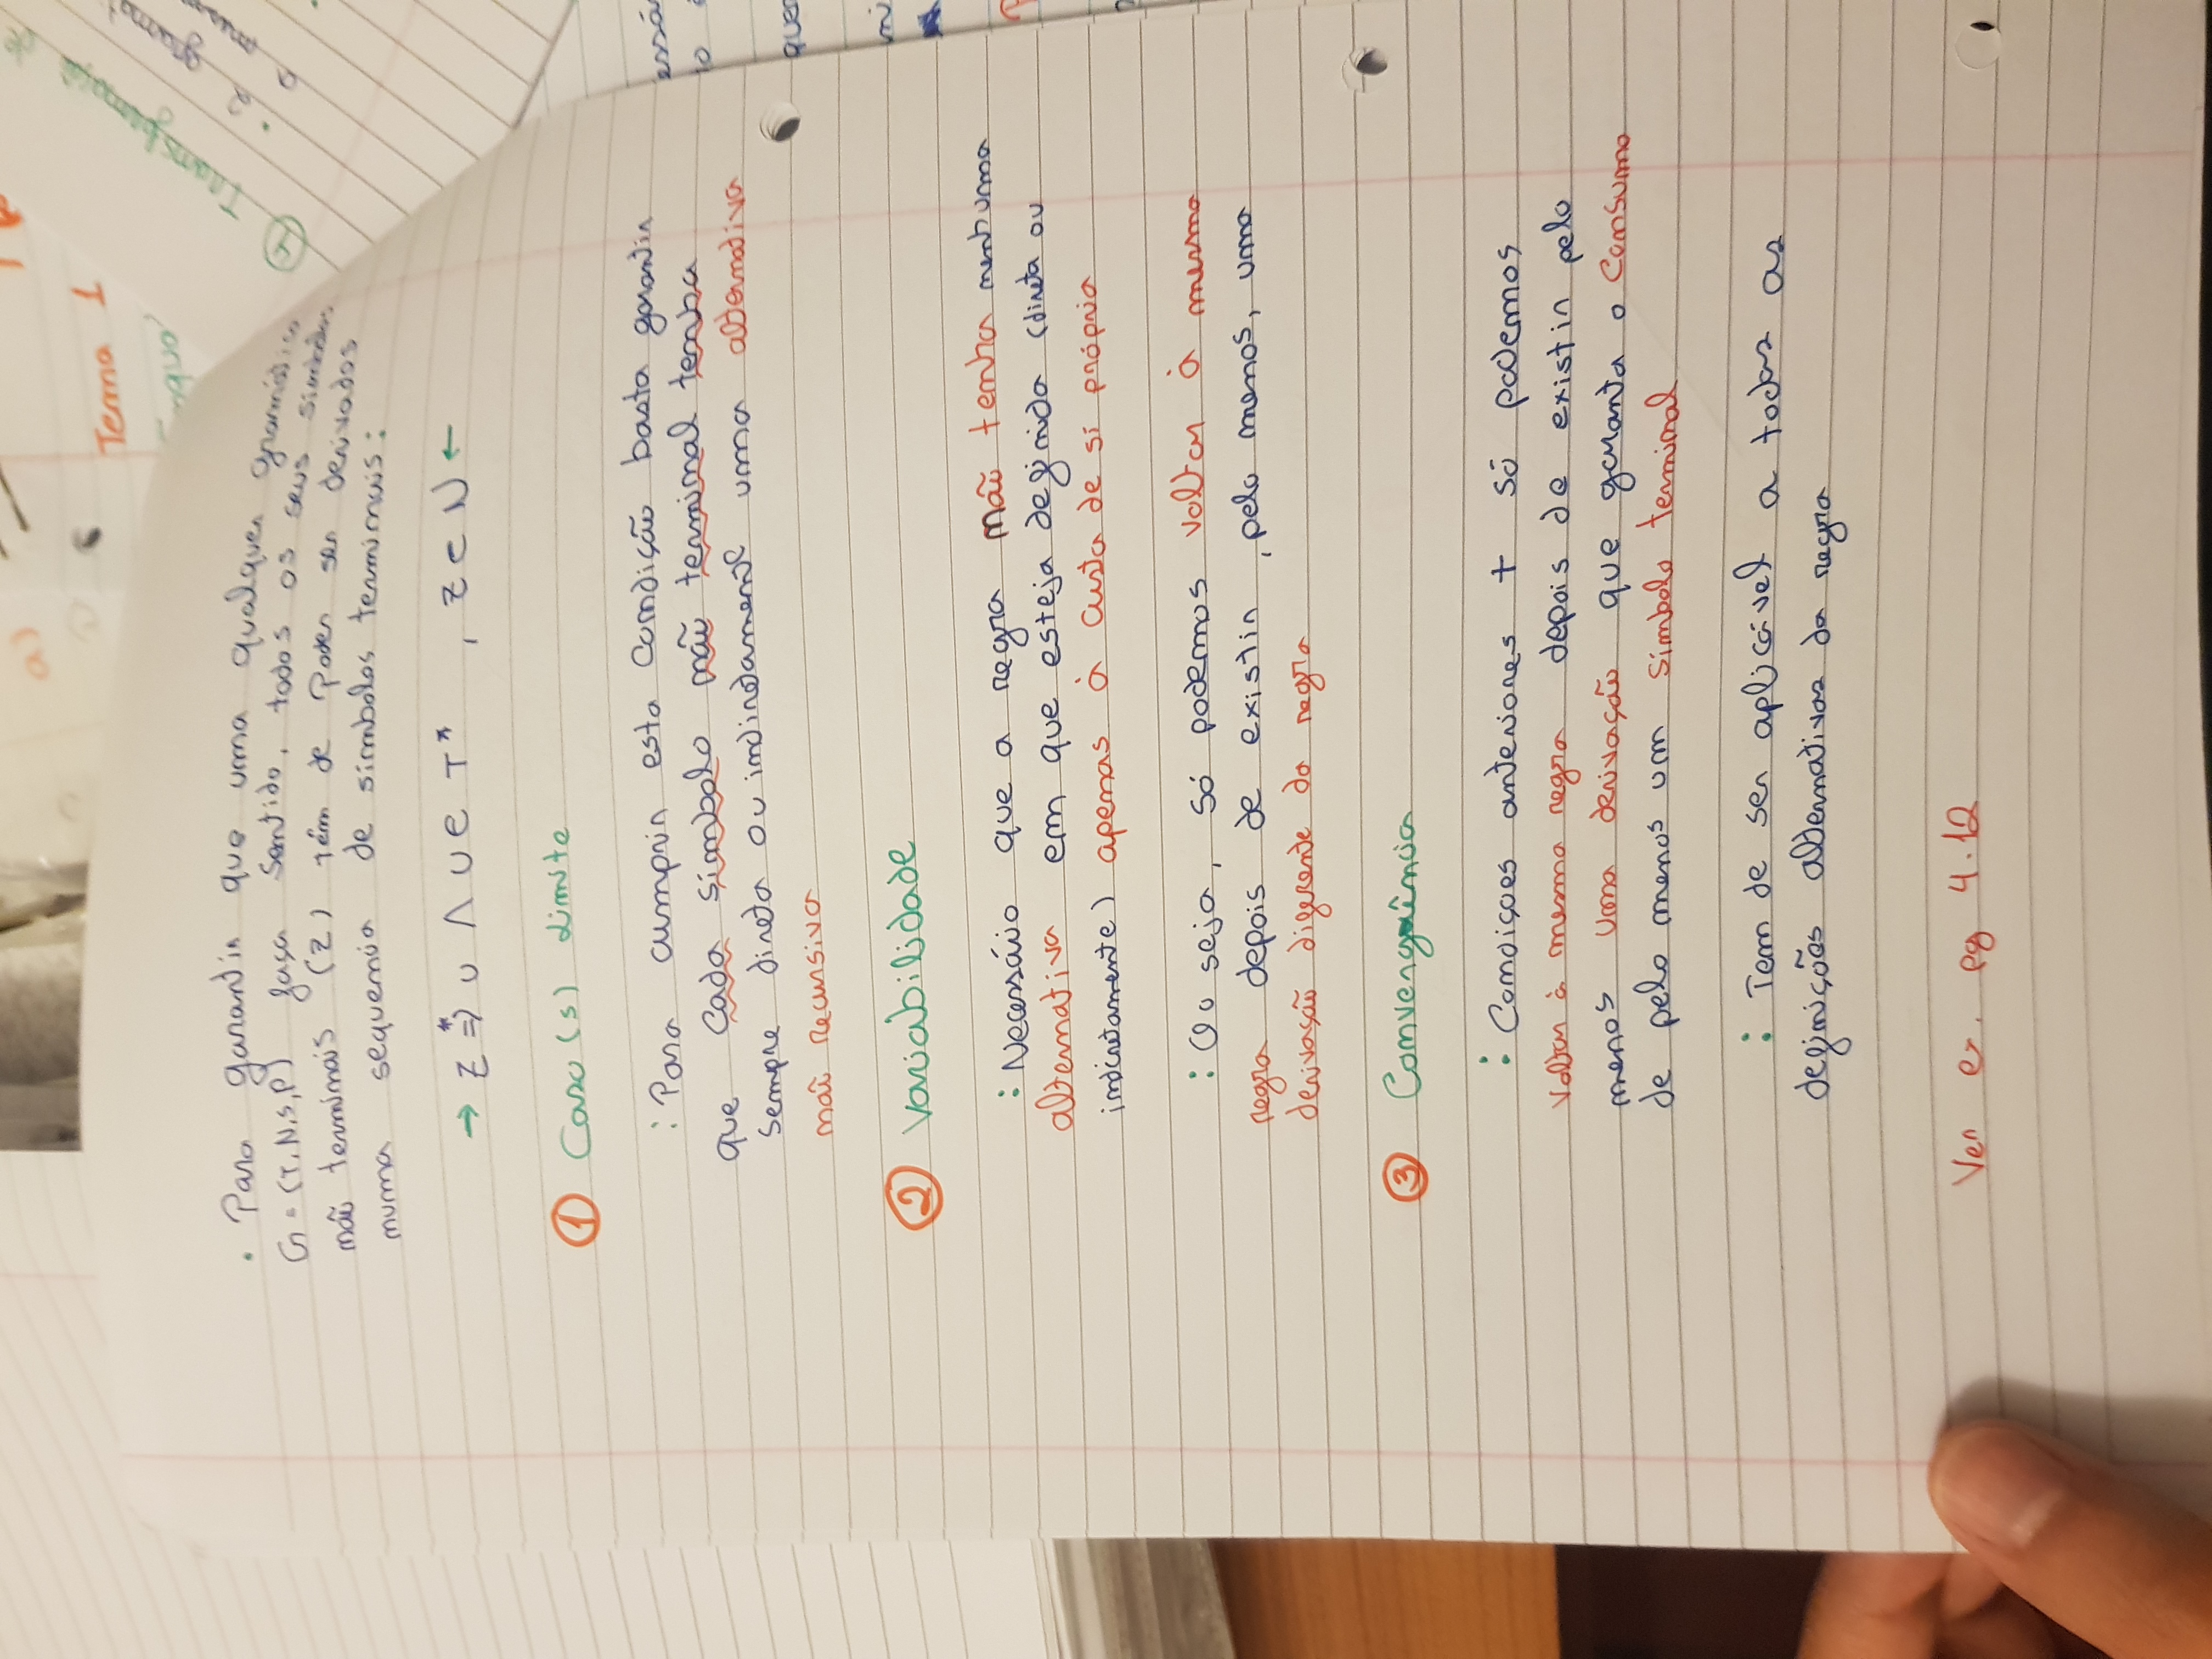 a)
Tema 1
Transformação de
• Para garantir que uma qualquer gramática
G = (T, N, S, P) faça sentido, todos os seus simbolos
não terminais (Z) têm de poder ser derivados
numa sequencia de simbolos terminais:
→ Z ⇒* u ∧ u ∈ T* , Z ∈ N ←
① Caso(s) Limite
: Para cumprir esta condição basta garantir
que cada simbolo não terminal tenha
sempre direta ou indiretamente uma alternativa
não recursiva
② Variabilidade
: Necessário que a regra não tenha nenhuma
alternativa em que esteja definida (direta ou
indiretamente) apenas à custa de si própria
: Ou seja, só podemos voltar à mesma
regra depois de existir, pelo menos, uma
derivação diferente da regra
③ Convergência
: Condiçoes anteriores + só podemos
voltar à mesma regra depois de existir pelo
menos uma derivação que garanta o consumo
de pelo menos um simbolo terminal
: Tem de ser aplicável a todas as
definições alternativas da regra
Ver ex. pg 4.12